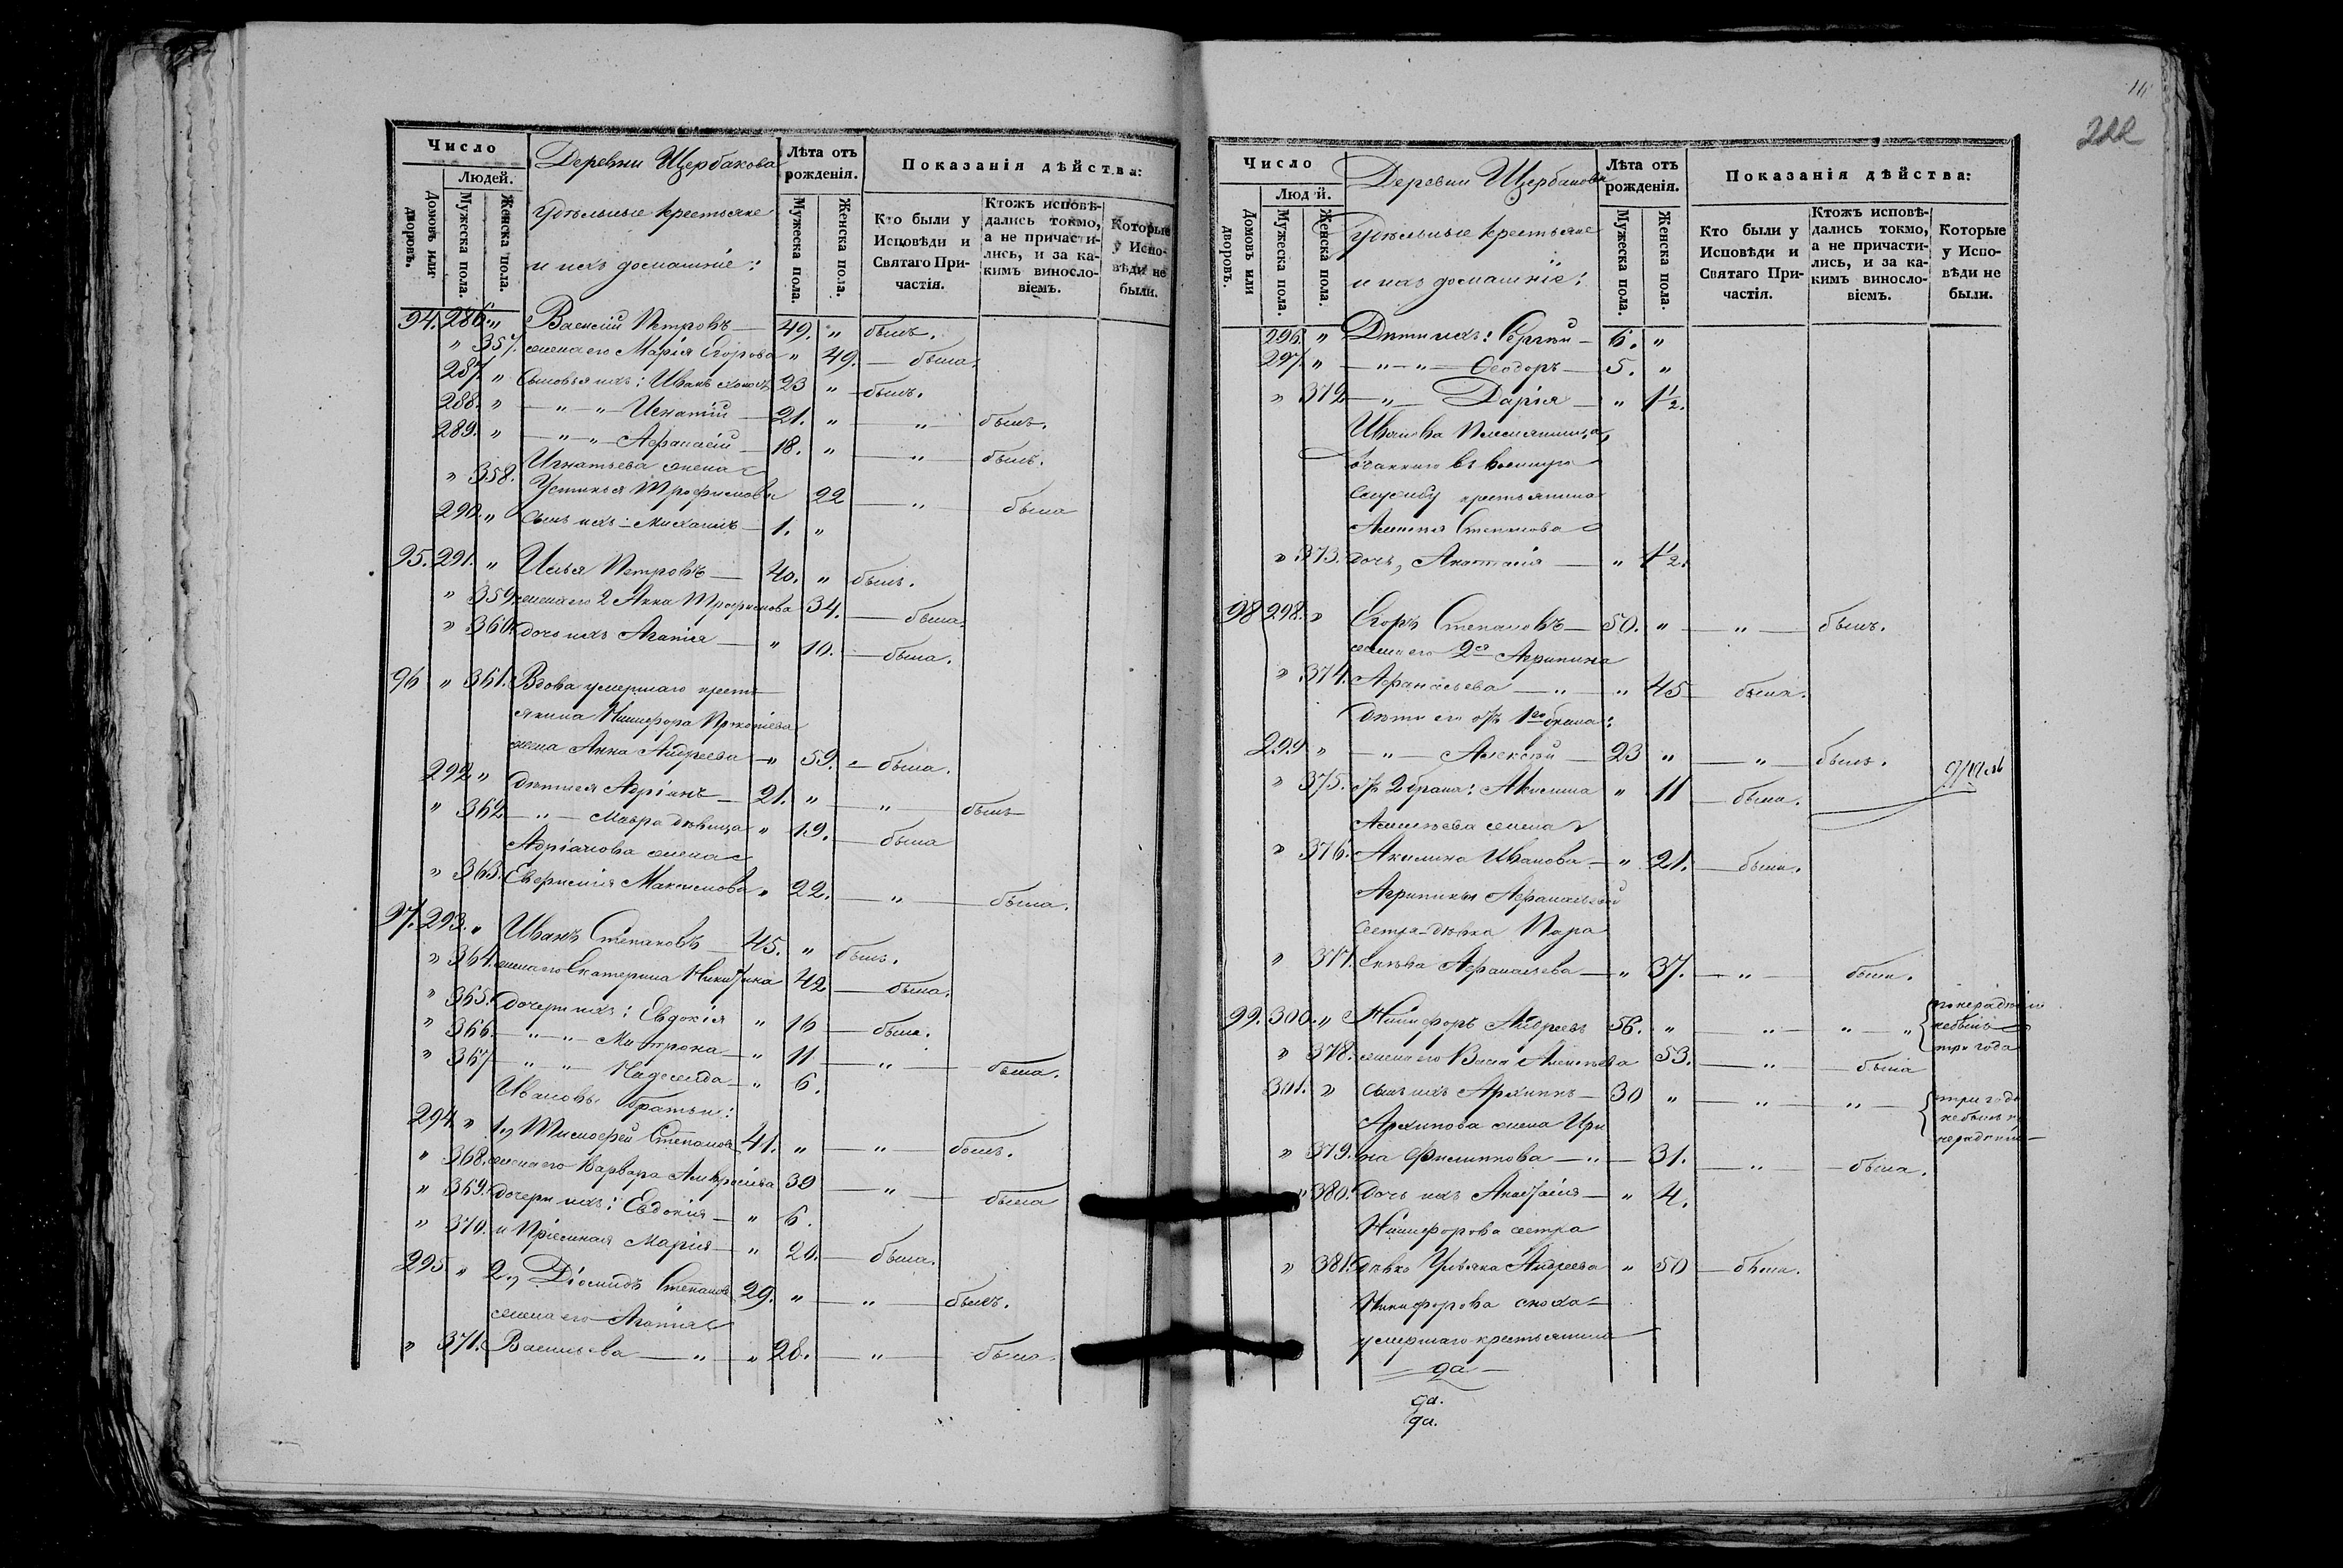 Число
Людей.
Домовъ или дворовъ.
Мужеска пола.
Женска пола.
Деревни Щербакова
Удѣльные крестьяне
и ихъ домашніе:
Лѣта отъ рожденія.
Мужеска пола.
Женска пола.
Показанія дѣйства:
Кто были у Исповѣди и Святаго Причастія.
Ктожъ исповѣ-
дались токмо,
а не причасти-
лись, и за ка-
кимъ виносло-
віемъ.
Которые
у Испо-
вѣди не
были.
94. 286. " Василій Петровъ — 49. " былъ.
" 357. жена его Марія Егорова " 49. — была.
287. " Сыновья ихъ: Иванъ холостъ 23 " — былъ.
288. " — " — " — Игнатій — 21. " — " — былъ.
289. " — " — " — Афанасій — 18. " — " — былъ.
Игнатьева жена
" 358. Устинья Трофимова 22 — " — была
290. " Сынъ ихъ Михаилъ — 1. "
95. 291. " Илья Петровъ — 40. " былъ.
" 359. жена его 2 Анна Трофимова 34. — была.
" 360. дочь ихъ Агапія — " 10. — была.
96 " 361. Вдова умершаго кресть-
янина Никифора Прокопіева
жена Анна Андреева — " 59. — была.
292. " Дѣти ея Адріанъ — 21. " — " — былъ
" 362 — " — Мавра дѣвица " 19. — была
Адріанова жена
" 363. Евфимія Максимова " 22. — " — была.
97. 293. " Иванъ Степановъ — 45. " былъ.
" 364. жена его Екатерина Никитина 42 — была.
" 365. дочери ихъ: Евдокія " 16 — была.
" 366. — " — " — Матрона — " 11 — " — была.
" 367 — " — " — Надежда — " 6.
Ивановы братья:
294. " 1, Тимофей Степановъ 41. " — " — былъ.
" 368. жена его Варвара 39 — " — была
" 369. дочери ихъ: Евдокія — " 6.
" 370. и пріемная Марія — " 20. — была.
295 " 2, Діомидъ Степановъ 29. " — " — былъ.
жена его Агапія
" 371. Васильева — " — " 28. — " — была.
222
Число
Людей.
Домовъ или дворовъ.
Мужеска пола.
Женска пола.
Деревни Щербакова
Удѣльные крестьяне
и ихъ домашніе:
Лѣта отъ рожденія.
Мужеска пола.
Женска пола.
Показанія дѣйства:
Кто были у
Исповѣди и
Святаго При-
частія.
Ктожъ исповѣ-
дались токмо,
а не причасти-
лись, и за ка-
кимъ виносло-
віемъ.
Которые
у Испо-
вѣди не
были.
296. " Дѣти ихъ: Сергѣй — 6. "
297. " — " — " — Ѳеодоръ — 5. "
" 372 — " — Дарія — " 1½.
Иванова племянника,
отданнаго въ военную
службу крестьянина
Степанова
" 373. дочь, Анастасія — " 1½.
98 298. " Егоръ Степановъ — 50. " — " — былъ.
жена его 2я Агрипина
" 374. Афанасьева — " — " 45 — была.
Дѣти его отъ 1го брака:
299 " — " — Алексѣй — 23 " — " — былъ.
" 375. отъ 2 брака: Акилина " 11 — была.
Алексѣева жена
" 376. Акилина Иванова — " 21. — была.
Агрипины Афанасьевой
сестра дѣвка Пара
" 377. скѣва Афанасьева — " 37. — " — была.
99. 300. " Никифоръ Андреевъ 56. " — " — " — " по нерадѣнію
не былъ
три года
" 378. жена его Васса Алексѣева 53. — " — была
301. " сынъ ихъ Архиппъ — 30 " — " — " — три года
не былъ по
нерадѣнію —
Архипова жена Ири
" 379. на Филиппова — " — 31. — " — была.
" 380. Дочь ихъ Анастасія — " 4.
Никифорова сестра
" 381. дѣвка Ульяна Андреева " 50 — была.
Никифорова сноха
умершаго крестьянина
да
да.
да.